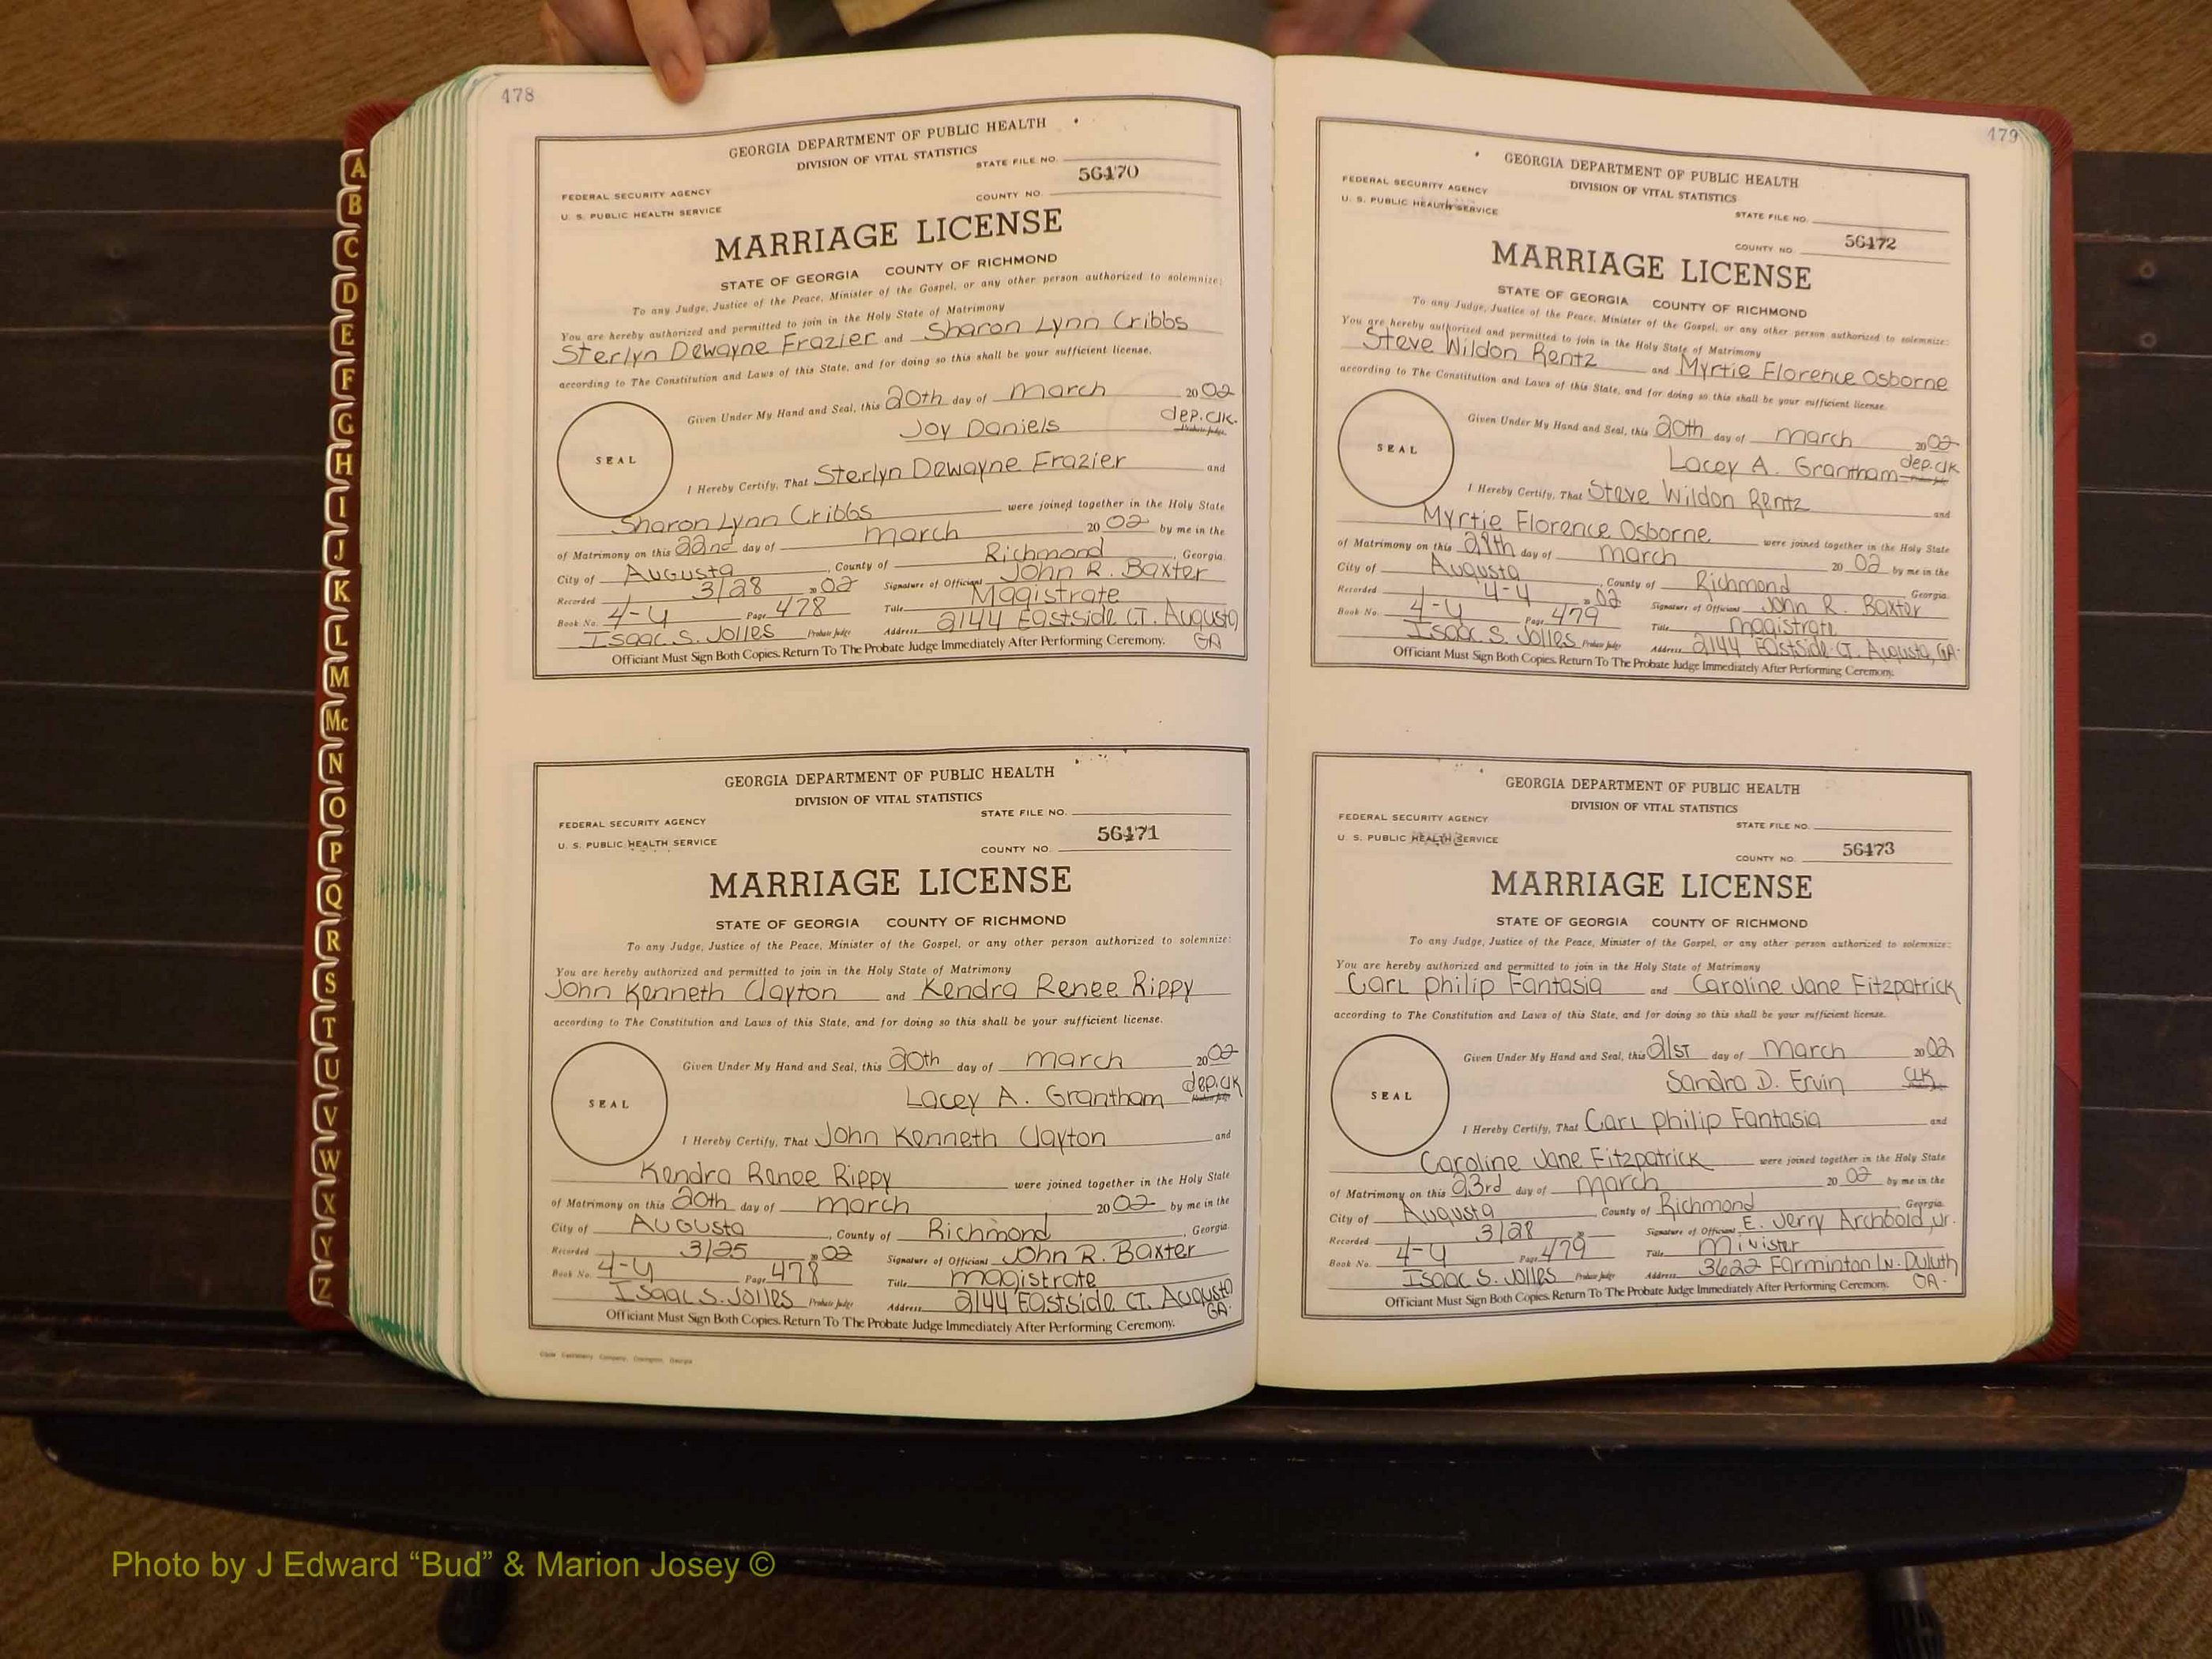 478
GEORGIA DEPARTMENT OF PUBLIC HEALTH
DIVISION OF VITAL STATISTICS
STATE FILE NO.
56470
FEDERAL SECURITY AGENCY
U. S. PUBLIC HEALTH SERVICE
COUNTY NO.
MARRIAGE LICENSE
STATE OF GEORGIA COUNTY OF RICHMOND
To any Judge, Justice of the Peace, Minister of the Gospel, or any other person authorized to solemnize:
You are hereby authorized and permitted to join in the Holy State of Matrimony
Sterlyn Dewayne Frazier and Sharon Lynn Cribbs
according to The Constitution and Laws of this State, and for doing so this shall be your sufficient license.
Given Under My Hand and Seal, this 20th day of March 2002
Joy Daniels dep.clk.
Probate Judge
SEAL
I Hereby Certify, That Sterlyn Dewayne Frazier and
Sharon Lynn Cribbs were joined together in the Holy State
of Matrimony on this 22nd day of March 2002 by me in the
City of Augusta, County of Richmond, Georgia.
Recorded 3/28 2002 Signature of Officiant John R. Baxter
Book No. 4-4 Page 478 Title Magistrate
Isaac S. Jolles Probate Judge Address 2144 Eastside CT. Augusta
GA
Officiant Must Sign Both Copies. Return To The Probate Judge Immediately After Performing Ceremony.
GEORGIA DEPARTMENT OF PUBLIC HEALTH
DIVISION OF VITAL STATISTICS
STATE FILE NO.
FEDERAL SECURITY AGENCY
56471
U. S. PUBLIC HEALTH SERVICE
COUNTY NO.
MARRIAGE LICENSE
STATE OF GEORGIA COUNTY OF RICHMOND
To any Judge, Justice of the Peace, Minister of the Gospel, or any other person authorized to solemnize:
You are hereby authorized and permitted to join in the Holy State of Matrimony
John Kenneth Clayton and Kendra Renee Rippy
according to The Constitution and Laws of this State, and for doing so this shall be your sufficient license.
Given Under My Hand and Seal, this 20th day of March 2002
Lacey A. Grantham dep.clk
SEAL
I Hereby Certify, That John Kenneth Clayton and
Kendra Renee Rippy were joined together in the Holy State
of Matrimony on this 20th day of March 2002 by me in the
City of Augusta, County of Richmond, Georgia.
Recorded 3/25 2002 Signature of Officiant John R. Baxter
Book No. 4-4 Page 478 Title magistrate
Isaac S. Jolles Probate Judge Address 2144 Eastside CT. Augusta
GA.
Officiant Must Sign Both Copies. Return To The Probate Judge Immediately After Performing Ceremony.
479
GEORGIA DEPARTMENT OF PUBLIC HEALTH
DIVISION OF VITAL STATISTICS
FEDERAL SECURITY AGENCY
U. S. PUBLIC HEALTH SERVICE
STATE FILE NO.
COUNTY NO. 56472
MARRIAGE LICENSE
STATE OF GEORGIA COUNTY OF RICHMOND
To any Judge, Justice of the Peace, Minister of the Gospel, or any other person authorized to solemnize:
You are hereby authorized and permitted to join in the Holy State of Matrimony
Steve Wildon Rentz and Myrtie Florence Osborne
according to The Constitution and Laws of this State, and for doing so this shall be your sufficient license.
Given Under My Hand and Seal, this 20th day of March 2002
Lacey A. Grantham dep.clk
SEAL
I Hereby Certify, That Steve Wildon Rentz and
Myrtie Florence Osborne were joined together in the Holy State
of Matrimony on this day of March 2002 by me in the
City of Augusta, County of Richmond Georgia.
Recorded 4-4 2002 Signature of Officiant John R. Baxter
Book No. 4-4 Page 479 Title magistrate
Isaac S. Jolles Probate Judge Address 2144 Eastside CT. Augusta, GA.
Officiant Must Sign Both Copies. Return To The Probate Judge Immediately After Performing Ceremony.
GEORGIA DEPARTMENT OF PUBLIC HEALTH
DIVISION OF VITAL STATISTICS
FEDERAL SECURITY AGENCY
STATE FILE NO.
U. S. PUBLIC HEALTH SERVICE
COUNTY NO. 56473
MARRIAGE LICENSE
STATE OF GEORGIA COUNTY OF RICHMOND
To any Judge, Justice of the Peace, Minister of the Gospel, or any other person authorized to solemnize:
You are hereby authorized and permitted to join in the Holy State of Matrimony
Carl Philip Fantasia and Caroline Jane Fitzpatrick
according to The Constitution and Laws of this State, and for doing so this shall be your sufficient license.
Given Under My Hand and Seal, this 21st day of March 2002
Sandra D. Ervin CLK
SEAL
I Hereby Certify, That Carl Philip Fantasia and
Caroline Jane Fitzpatrick were joined together in the Holy State
of Matrimony on this 23rd day of March 2002 by me in the
City of Augusta, County of Richmond Georgia.
Recorded 3/28 20 Signature of Officiant E. Jerry Archbold, Jr.
Book No. 4-4 Page 479 Title Minister
Isaac S. Jolles Probate Judge Address 3622 Farminton LN. Duluth
GA.
Officiant Must Sign Both Copies. Return To The Probate Judge Immediately After Performing Ceremony.
A
B
C
D
E
F
G
H
I
J
K
L
M
Mc
N
O
P
Q
R
S
T
U
V
W
X
Y
Z
Photo by J Edward “Bud” & Marion Josey ©